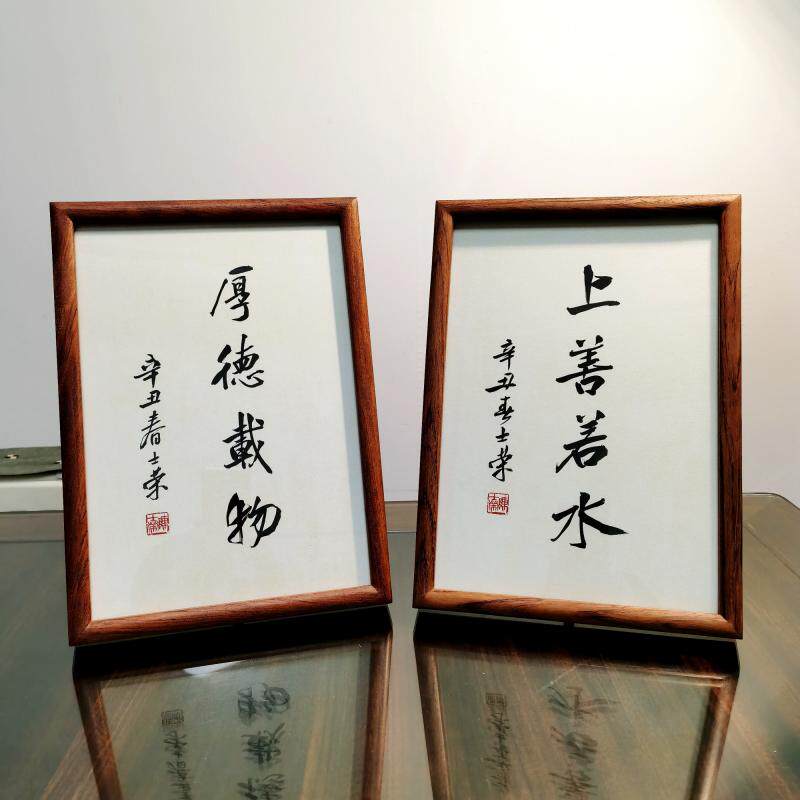 厚德載物
辛丑春士荣
上善若水
辛丑春士荣